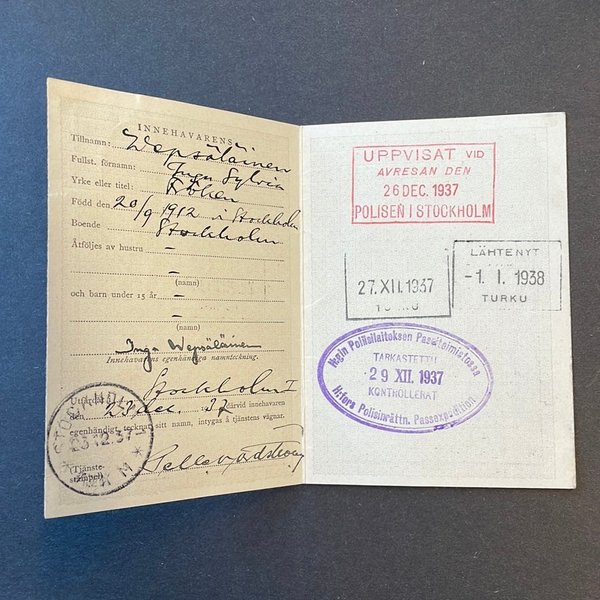 INNEHAVARENS
Tillnamn: Wepsäläinen
Fullst. förnamn: Inga Sylvia
Yrke eller titel: Fröken
Född den 20/9 1912 i Stockholm
Boende Stockholm
Åtföljes av hustru –
–
(namn)
och barn under 15 år –
–
(namn)
Inga Wepsäläinen
Innehavarens egenhändiga namnteckning.
Stockholm 1
den 23 dec. 37 därvid innehavaren
egenhändigt tecknat sitt namn, intygas å tjänstens vägnar.
(Tjänste-
stämpel)
23.12.37
UPPVISAT VID
AVRESAN DEN
26 DEC. 1937
POLISEN I STOCKHOLM
27. XII. 1937
LÄHTENYT
-1. I. 1938
TURKU
H:gin Poliisilaitoksen Passitoimistossa
TARKASTETTU
29 XII. 1937
KONTROLLERAT
H:fors Polisinrättn. Passexpedition